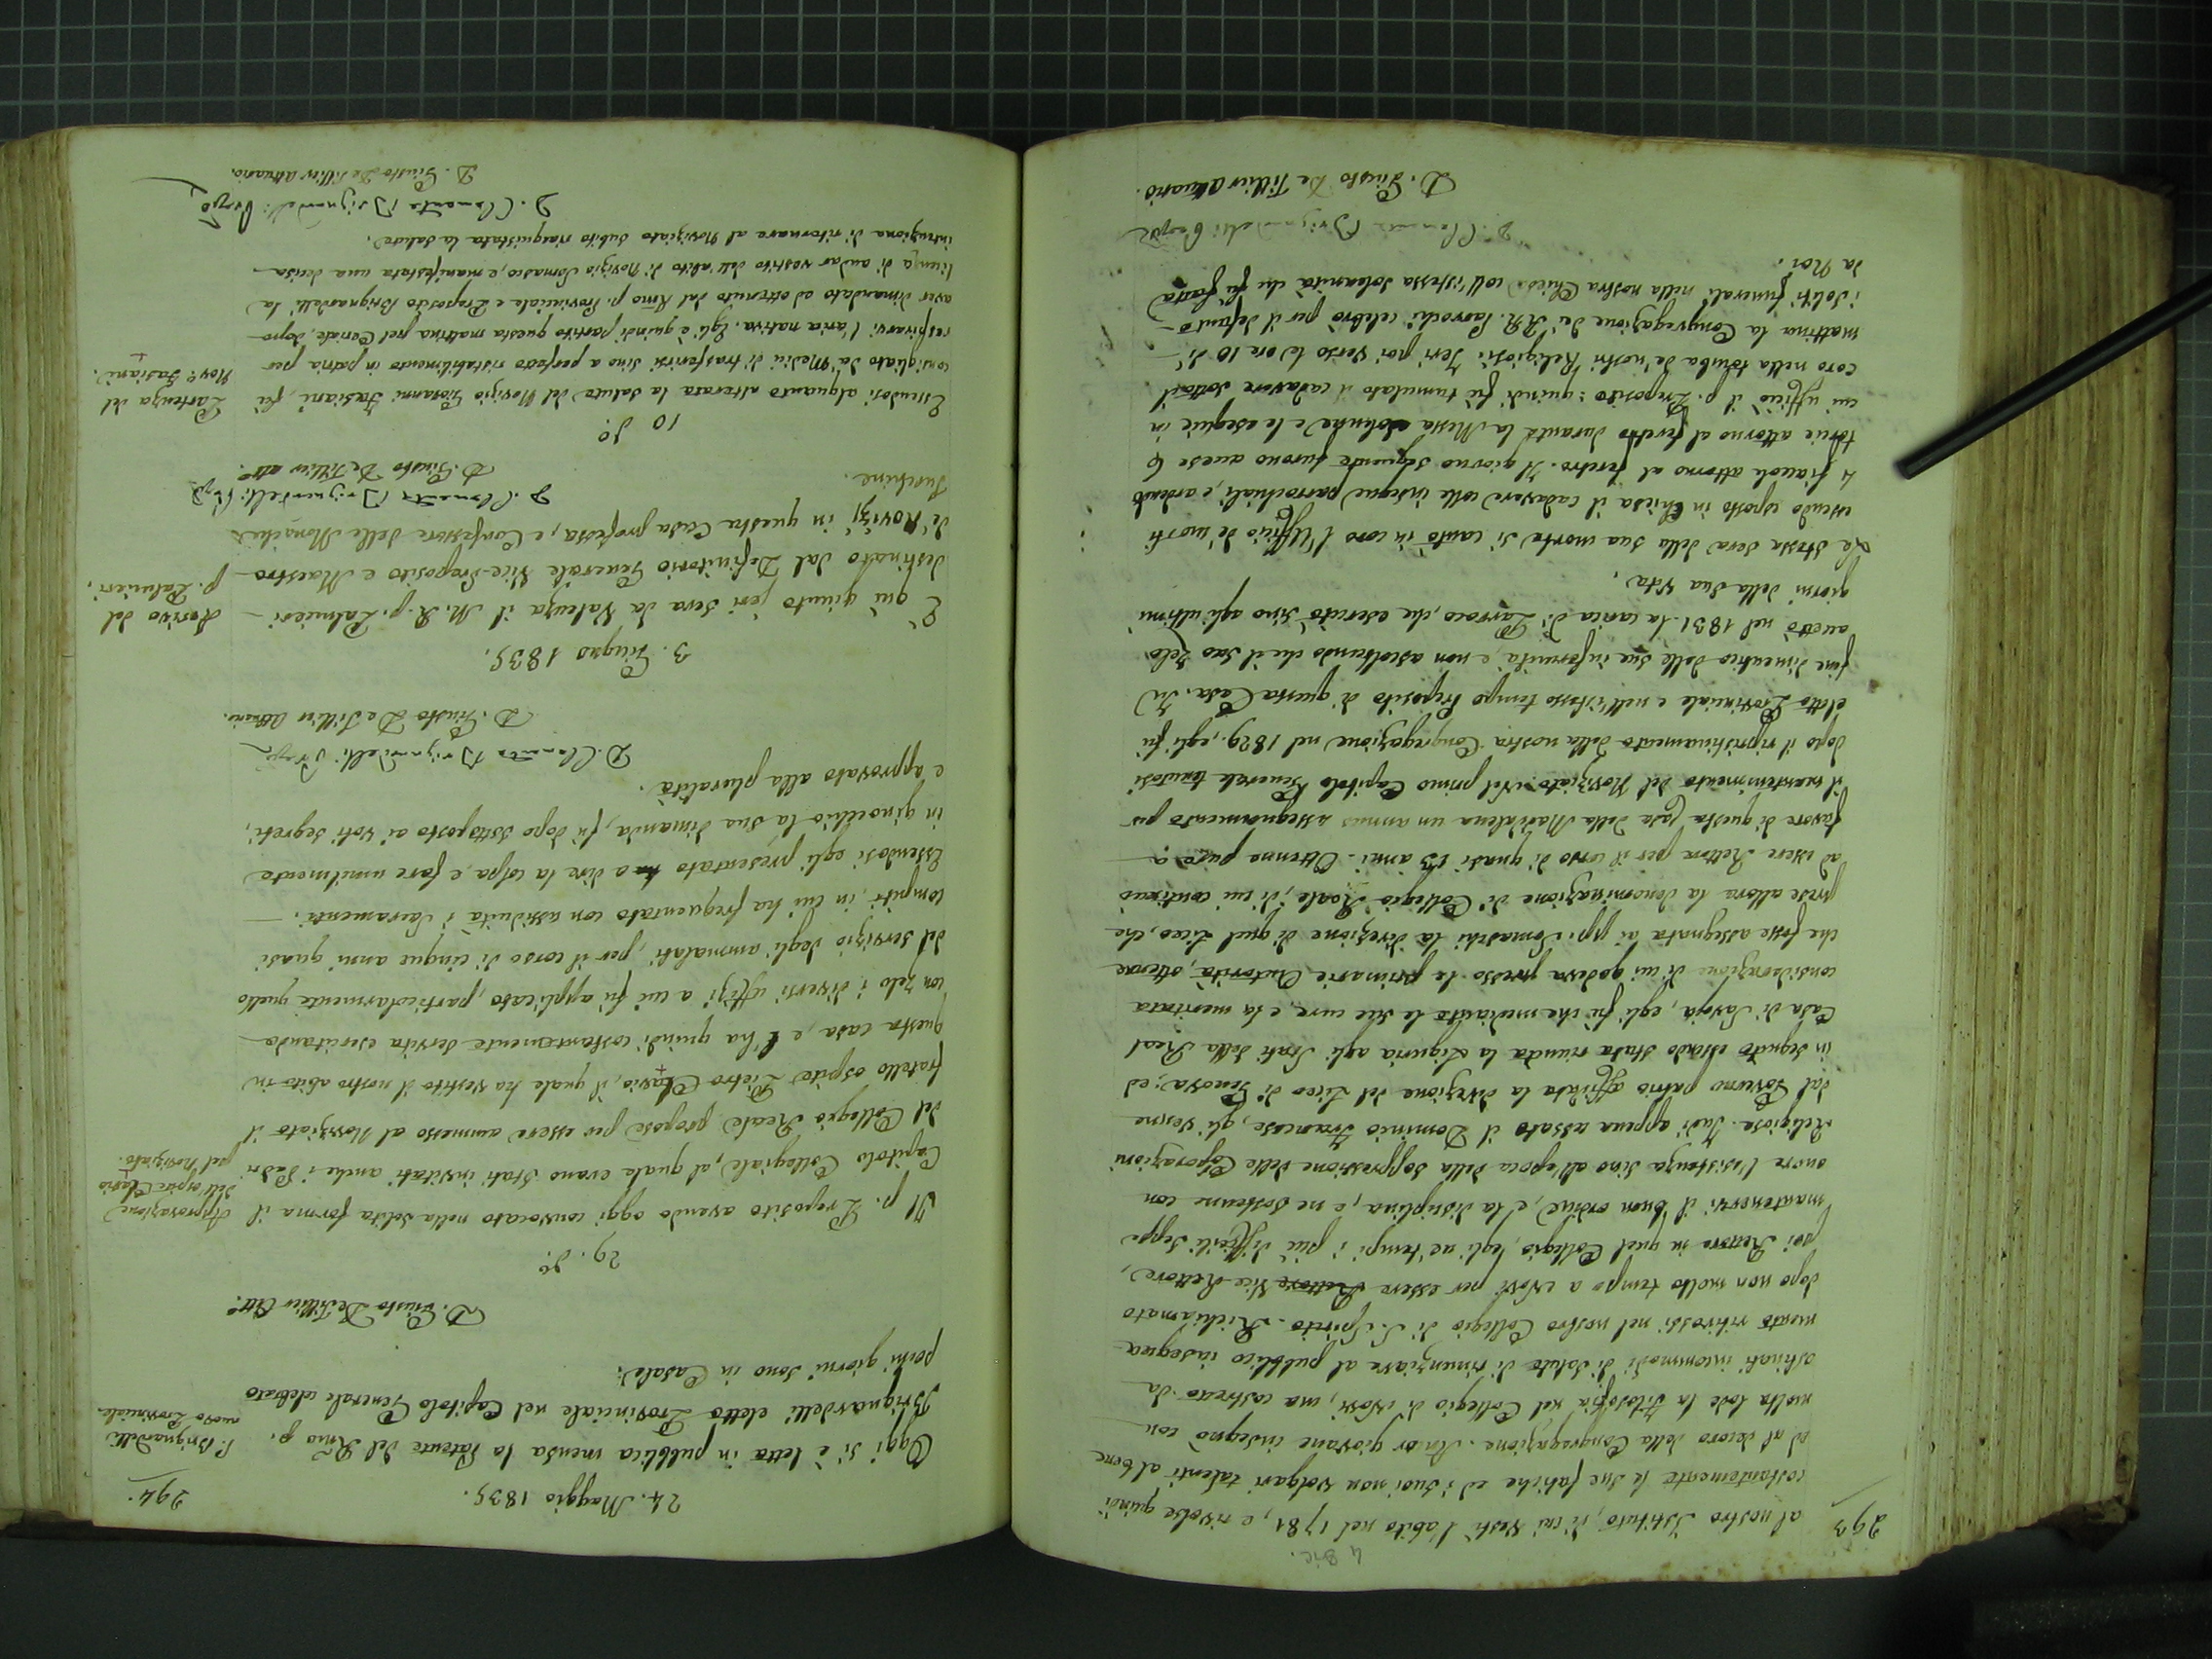 293
4 Dic.
al nostro Istituto, di cui vestì l'abito nel 1781, e rivolse quindi
costantemente le sue fatiche ed i suoi non volgari talenti al bene
ed al decoro della Congregazione. Ancor giovane insegnò con
molta lode la Filosofia nel Collegio di Novi, ma costretto da
ostinati incommodi di salute di rinunziare al pubblico insegna
mento ritirossi nel nostro Collegio di S. Spirito. Richiamato
dopo non molto tempo a Novi per essere Rettore Vice-Rettore,
poi Rettore in quel Collegio, egli ne' tempi i più difficili seppe
mantenervi il buon ordine, e la disciplina, e ne sostenne con
onore l'esistenza sino all'epoca della soppressione delle Corporazioni
Religiose. Indi appena cessato il Dominio Francese, gli venne
dal Governo patrio affidata la direzione del Liceo di Genova; ed
in seguito essendo stata riunita la Liguria agli Stati della Real
Casa di Savoja, egli fù che mediante le sue cure, e la meritata
considerazione di cui godeva presso le primarie Autorità, ottenne
che fosse assegnata ai pp. Somaschi la direzione di quel Liceo, che
prese allora la denominazione di Collegio Reale, di cui continuò
ad essere Rettore per il corso di quasi 13 anni. Ottenne pure a
favore di questa Casa della Maddalena un annuo assegnamento per
il mantenimento del Noviziato. Nel primo Capitolo Generale tenutosi
dopo il ripristinamento della nostra Congregazione nel 1829, egli fù
eletto Provinciale e nell'istesso tempo Preposito di questa Casa. In
fine dimentico delle sue infermità, e non ascoltando che il suo zelo
accettò nel 1831 la carica di Parroco, che esercitò sino agli ultimi
giorni della sua vita.
La stessa sera della sua morte si cantò in coro l'Ufficio de' morti
essendo esposto in Chiesa il cadavere colle insegne parrochiali, e ardendo
4 fiaccole attorno al feretro. Il giorno seguente furono accese 6
torcie attorno al feretro durante la Messa solenne e le esequie in
cui ufficiò il p. Preposito: quindi fù tumulato il cadavere sotto il
coro nella tomba de' nostri Religiosi. Jeri poi verso le ore 10 di
mattina la Congregazione dei RR. Parrochi celebrò per il defunto
i soliti funerali nella nostra Chiesa coll'istessa solennità che fu fatta
da Noi.
D. Clemente Brignardelli Prep.
D. Giusto De Tillier Attuario.
294.
24. Maggio 1835.
P. Brignardelli
nuovo Provinciale.
Oggi si è letta in pubblica mensa la Patente del Rmo p.
Brignardelli eletto Provinciale nel Capitolo Generale celebrato
pochi giorni sono in Casale.
D. Giusto De Tillier Att.o
29. do.
Approvazione
dell'ospite Clavio
pel Noviziato.
Il p. Preposito avendo oggi convocato nella solita forma il
Capitolo Collegiale, al quale erano stati invitati anche i Padri
del Collegio Reale, propose per essere ammesso al Noviziato il
fratello ospite Pietro Clavio, il quale ha vestito il nostro abito in
questa casa, e l'ha quindi costantemente servita esercitando
con zelo i diversi uffizj a cui fù applicato, particolarmente quello
del servizio degli ammalati, per il corso di cinque anni quasi
compiti, in cui ha frequentato con assiduità i Sacramenti.
Essendosi egli presentato a dire la colpa, e fare umilmente
in ginocchio la sua dimanda, fù dopo sottoposto ai voti segreti,
e approvato alla pluralità.
D. Clemente Brignardelli Prep.
D. Giusto De Tillier Attuario.
3. Giugno 1835.
Arrivo del
p. Palmieri.
È qui giunto jeri sera da Valenza il M. R. p. Palmieri
destinato dal Definitorio Generale Vice-Preposito e Maestro
de' Novizj in questa Casa professa, e Confessore delle Monache
Turchine.
D. Clemente Brignardelli Prep.
D. Giusto De Tillier att.o
10 do.
Partenza del
Nov.o Fasiani.
Essendosi alquanto alterata la salute del Novizio Giovanni Fasiani, fù
consigliato da' Medici di trasferirsi sino a perfetto ristabilimento in patria per
respirarvi l'aria nativa. Egli è quindi partito questa mattina pel Cenale, dopo
aver dimandato ed ottenuto dal Rmo p. Provinciale e Preposito Brignardelli la
licenza di andar vestito dell'abito di Novizio Somasco, e manifestata una decisa
intenzione di ritornare al Noviziato subito riacquistata la salute.
D. Clemente Brignardelli Prep.o
D. Giusto De Tillier Attuario.